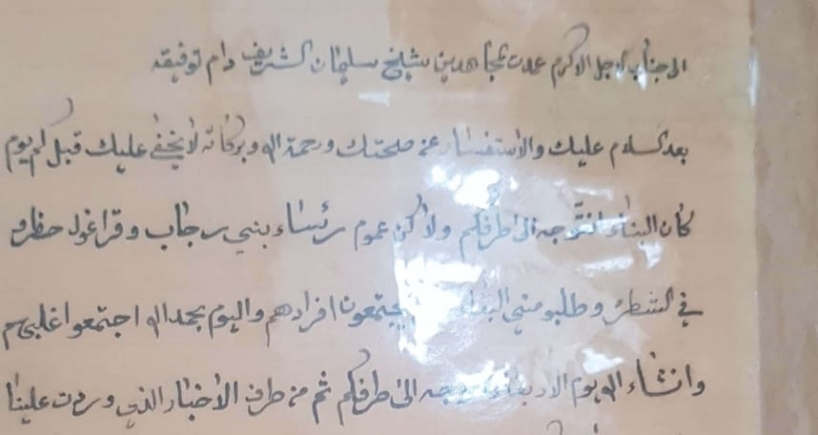 الى جناب الاجل الاكرم عمدت المجاهدين شيخ سلمان الشريف دام توفيقه
بعد السلام عليك والاستفسار عن صحتك ورحمة الله وبركاته لا يخفى عليك قبل كم يوم
كان البناء نتوجه الى طرفكم ولاكن عموم رئساء بني رجاب وقراغول حظرو
في الشطره وطلبو مني يجتمعون افرادهم واليوم بحمد الله اجتمعوا اغلبهم
وانشاء الله يوم الاربعاء الى طرفكم ثم من طرف الاخبار الذي وردت علينا